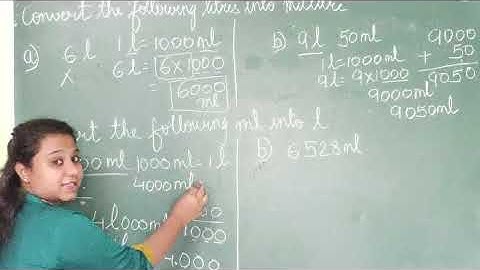 Convert the following litres into millitre
a) 6l 1l = 1000ml
X 6l = 6×1000
= 6000 ml
b) 9l 50ml
1l = 1000ml
9l = 9×1000
9000ml
9050ml
9000
+ 50
9050
the following ml into l
1000ml = 1l
4000ml
1000
4.000
b) 6528ml